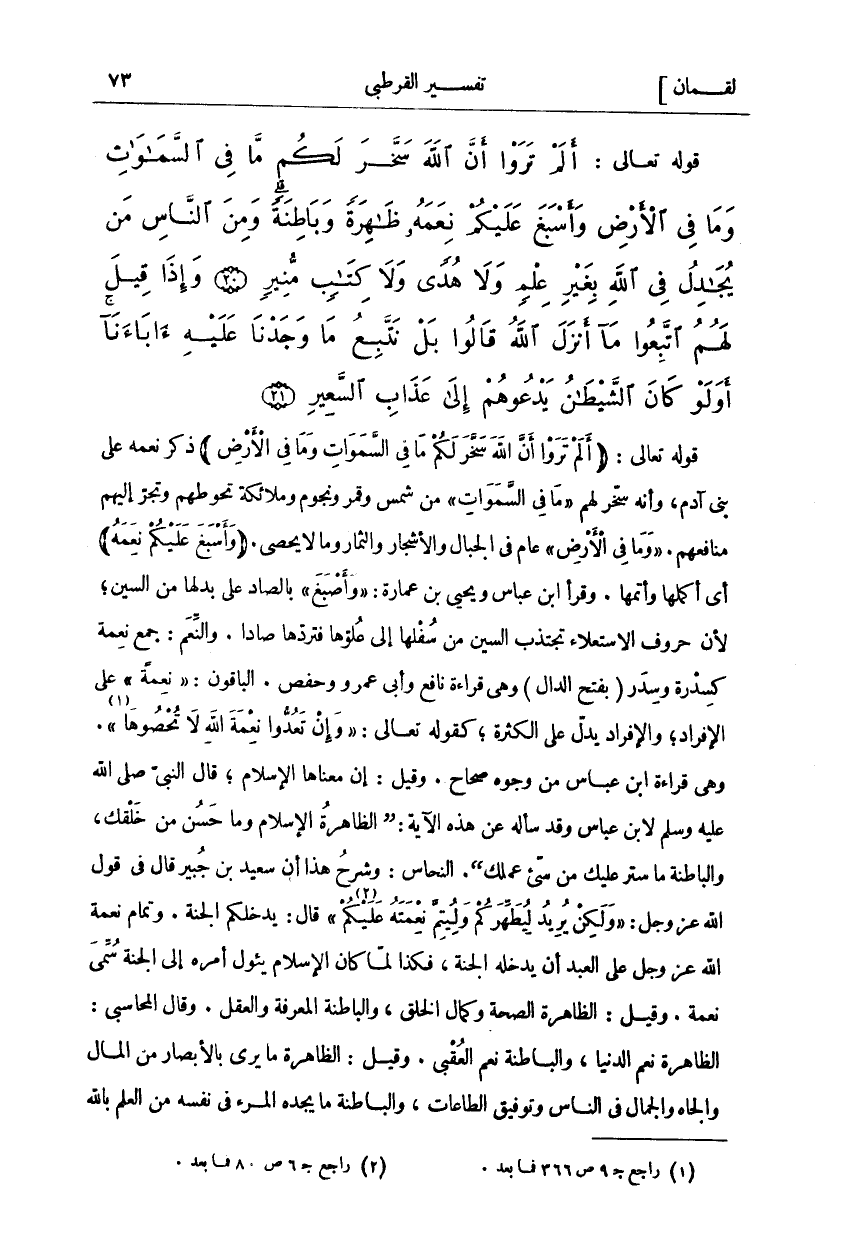 لقـــمان ] تفســـير القرطبى ٧٣
قوله تعـالى : أَلَمْ تَرَوْا أَنَّ ٱللَّهَ سَخَّـرَ لَـكُم مَّا فِى ٱلسَّمَـٰوَٰتِ
وَمَا فِى ٱلْأَرْضِ وَأَسْبَغَ عَلَيْكُمْ نِعَمَهُۥ ظَـٰهِرَةً وَبَاطِنَةً ۗ وَمِنَ ٱلنَّاسِ مَن
يُجَـٰدِلُ فِى ٱللَّهِ بِغَيْرِ عِلْمٍ وَلَا هُدًى وَلَا كِتَـٰبٍ مُّنِيرٍ ﴿٢٠﴾ وَإِذَا قِيلَ
لَهُـمُ ٱتَّبِعُوا مَآ أَنزَلَ ٱللَّهُ قَالُوا بَلْ نَتَّبِـعُ مَا وَجَدْنَا عَلَيْـهِ ءَابَآءَنَآ ۚ
أَوَلَوْ كَانَ ٱلشَّيْطَـٰنُ يَدْعُوهُمْ إِلَىٰ عَذَابِ ٱلسَّعِيرِ ﴿٢١﴾
قوله تعالى : ﴿ أَلَمْ تَرَوْا أَنَّ اللَّهَ سَخَّرَ لَكُمْ مَا فِى السَّمَوَاتِ وَمَا فِى الْأَرْضِ ﴾ ذكر نعمه على
بنى آدم، وأنه سخّر لهم «مَا فِى السَّمَوَاتِ» من شمس وقمر ونجوم وملائكة تحوطهم وتجرّ إليهم
منافعهم. «وَمَا فِى الْأَرْضِ» عام فى الجبال والأشجار والثمار وما لا يحصى. ﴿وَأَسْبَغَ عَلَيْكُمْ نِعَمَهُ﴾
أى أكملها وأتمها . وقرأ ابن عباس ويحيى بن عمارة : «وَأَصْبَغَ» بالصاد على بدلها من السين؛
لأن حروف الاستعلاء تجتذب السين من سُفْلها إلى عُلوّها فتردّها صادا . والنِّعَم : جمع نعمة
كسِدْرة وسِدَر ( بفتح الدال ) وهى قراءة نافع وأبى عمرو وحفص . الباقون : « نعمةً » على
الإفراد؛ والإفراد يدلّ على الكثرة ؛ كقوله تعـالى : « وَإِنْ تَعُدُّوا نِعْمَةَ اللَّهِ لَا تُحْصُوهَا (١)».
وهى قراءة ابن عبـاس من وجوه صحاح . وقيل : إن معناها الإسلام ؛ قال النبىّ صلى الله
عليه وسلم لابن عباس وقد سأله عن هذه الآية : ”الظاهرةُ الإسلام وما حَسُن من خَلْقك ،
والباطنة ما ستر عليك من سّئ عملك“. النحاس : وشرحُ هذا أن سعيد بن جُبير قال فى قول
الله عز وجل : «وَلَكِنْ يُرِيدُ لِيُطَهِّرَكُمْ وَلِيُتِمَّ نِعْمَتَهُ عَلَيْكُمْ (٢)» قال : يدخلكم الجنة . وتمام نعمة
الله عز وجل على العبد أن يدخله الجنة ، فكذا لمّـا كان الإسلام يئول أمره إلى الجنة سُمِّىَ
نعمة . وقيـل : الظاهرة الصحة وكمال الخلق ، والباطنة المعرفة والعقل . وقال المحاسبى :
الظاهرة نعم الدنيا ، والبـاطنة نعم العُقْبى . وقيـل : الظاهرة ما يرى بالأبصار من المـال
والجاه والجمال فى النـاس وتوفيق الطاعات ، والبـاطنة ما يجده المـرء فى نفسه من العلم بالله
(١) راجع جـ ٩ ص ٣٦٦ فـا بعد .
(٢) راجع جـ ٦ ص ٨٠ فـا بعد .